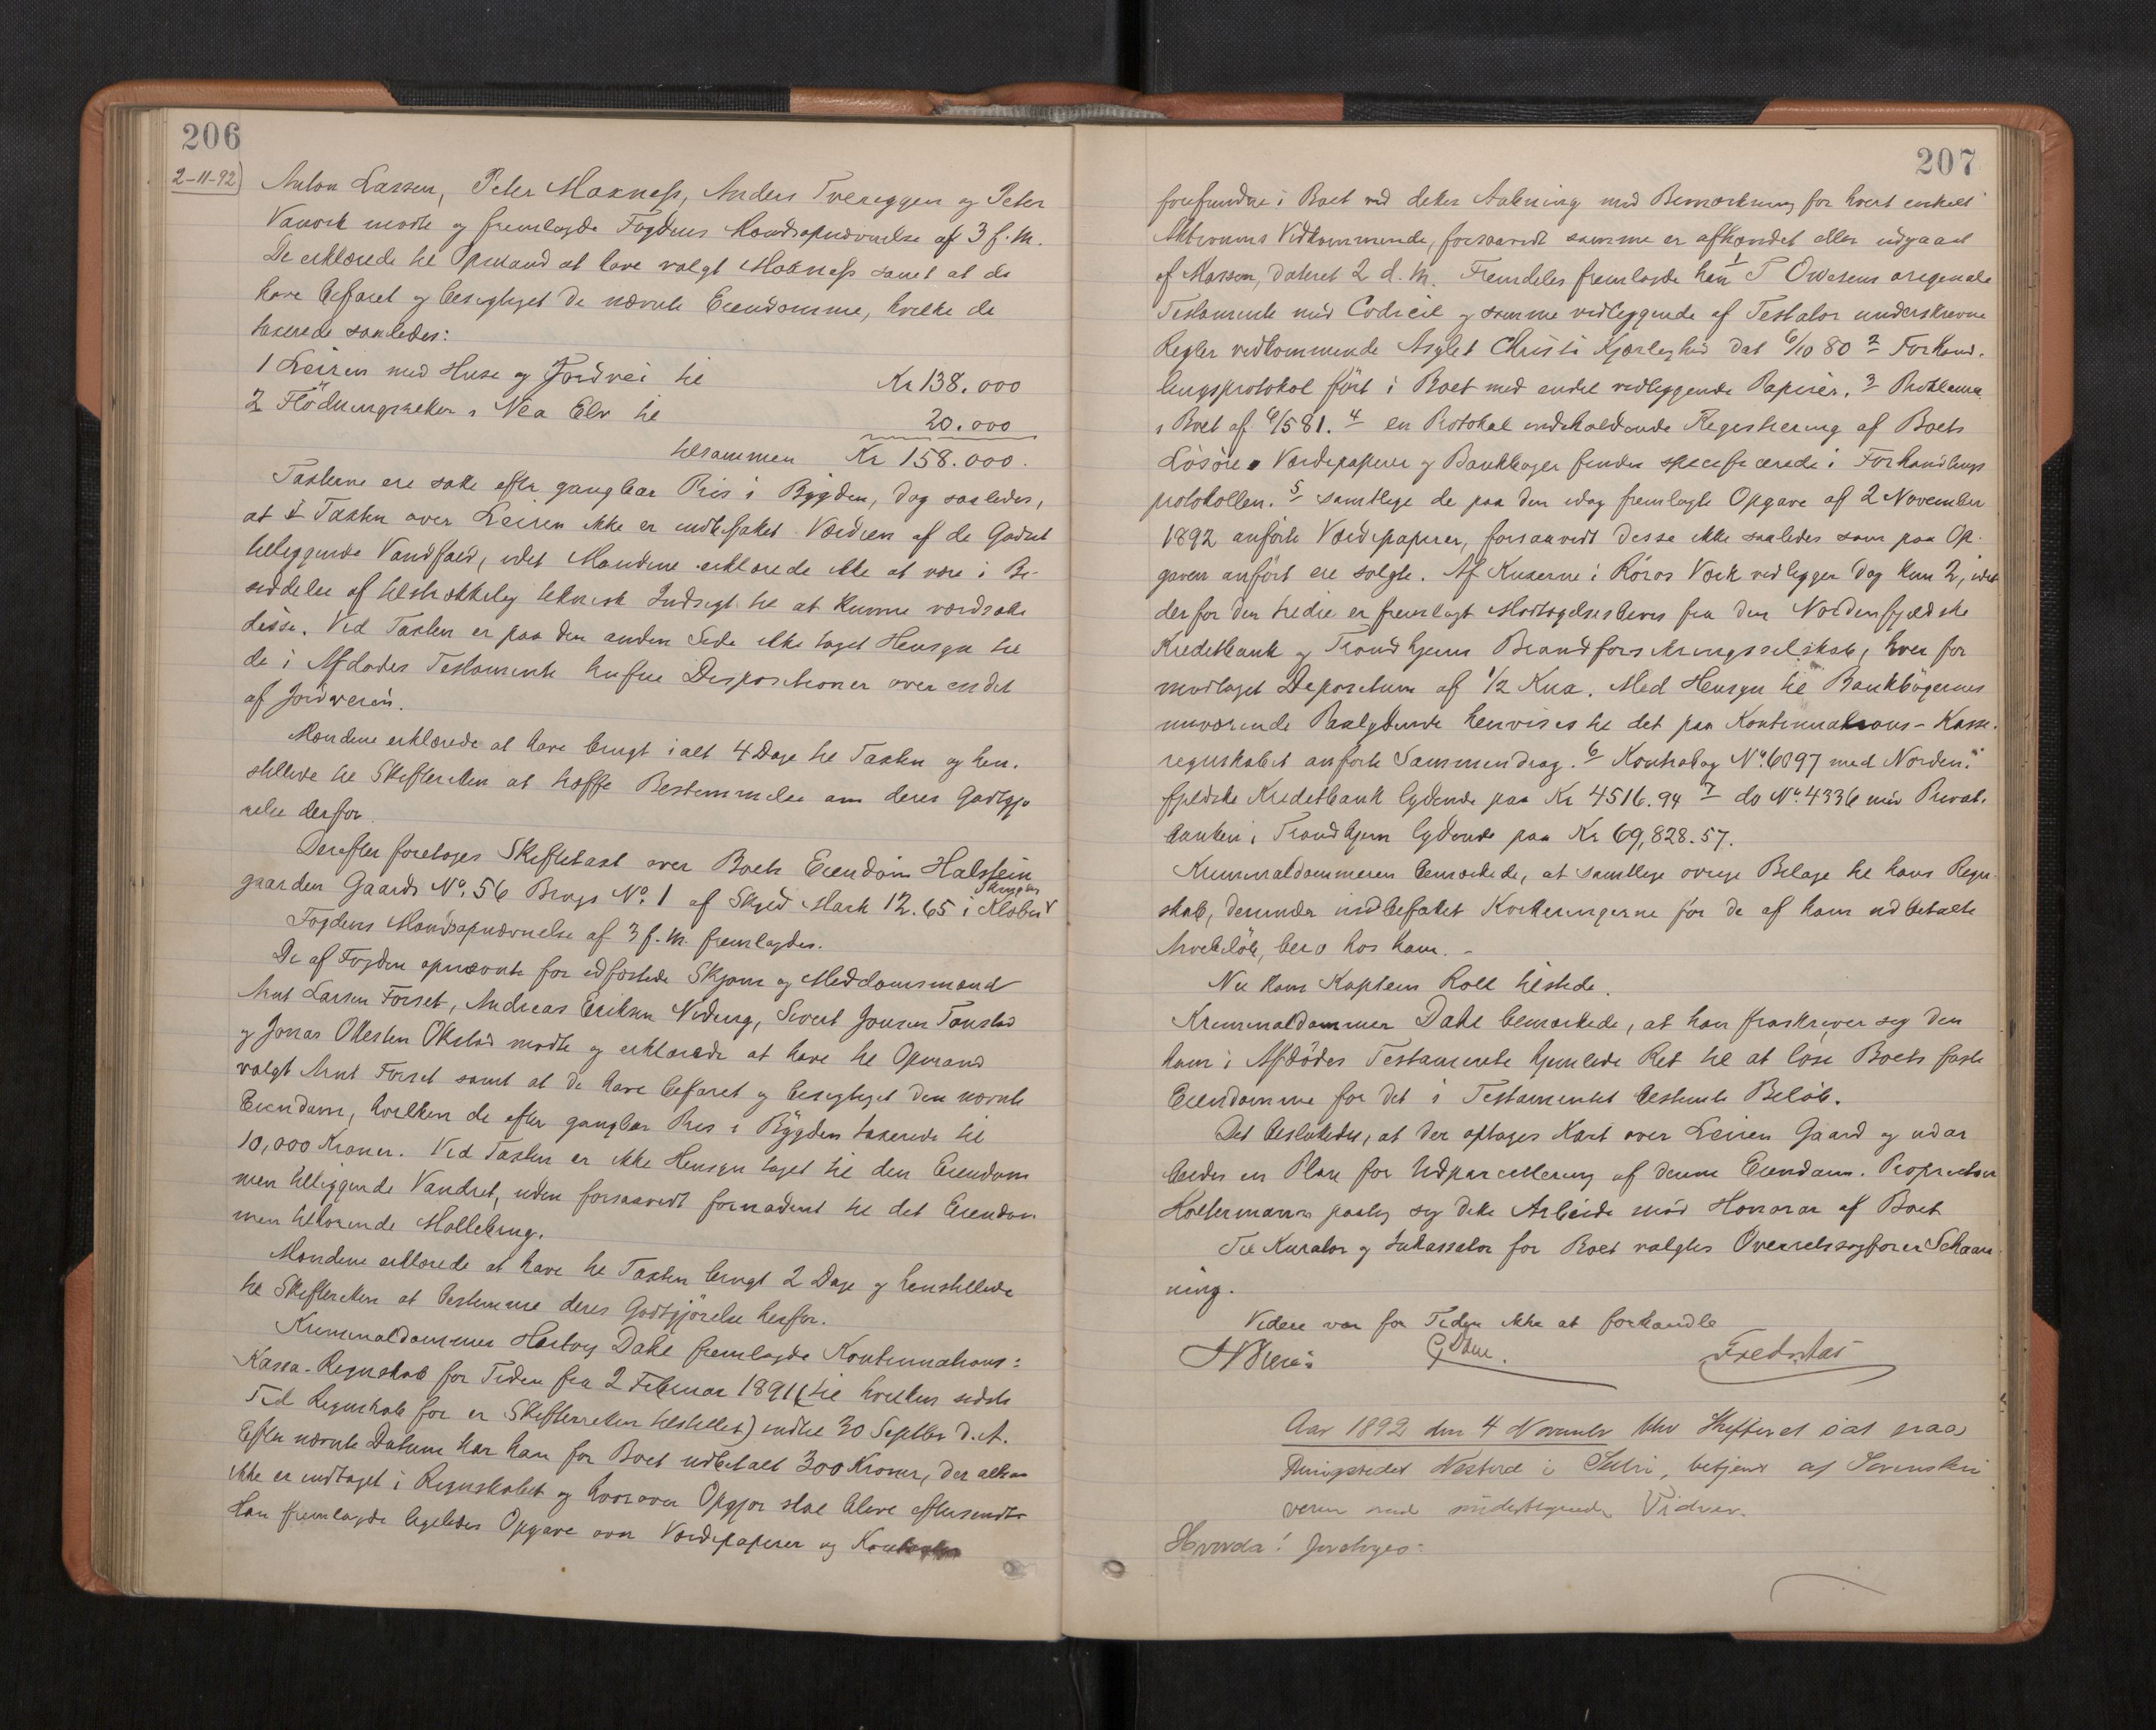 206
2-11-92)
Anton Lassen, Peter Moxness, Anders Tvereggen og Peter
Vanvik mødte og fremlagde Fogdens Mandsopnævnelse af 3 f. M.
De erklærede til Opmand at have valgt Moxness samt at de
have befaret og besigtiget de nævnte Eiendomme, hvilke de
taxerede saaledes:
1 Leiren med Huse og Jordvei til Kr 138.000
2 Flödningsretten i Nea Elv til 20.000
tilsammen Kr 158.000.
Taxterne ere satte efter gangbar Pris i Bygden, dog saaledes,
at i Taxten over Leiren ikke er indbefattet Værdien af de Godset
tilliggende Vandfald, idet Mændene erklærede ikke at være i Be-
siddelse af tilstrækkelig teknisk Indsigt til at kunne værdsætte
disse. Ved Taxten er paa den anden Side ikke taget Hensyn til
de i Afdødes Testamente trufne Dispositioner over endel
af Jordveien.
Mændene erklærede at have brugt ialt 4 Dage til Taxten og hen-
stillede til Skifteretten at træffe Bestemmelse om deres Godtgjø
relse derfor.
Derefter foretoges Skiftetaxt over Boets Eiendom Halstein
gaarden Gaards No. 56 Brugs No. 1 af Skyld Mark 12.65 i Klæbu
Fogdens Mandsopnævnelse af 3 f. M. fremlagdes.
De af Fogden opnævnte før edfæstede Skjøns og Meddomsmænd
Arnt Larsen Forset, Andreas Eriksen Nideng, Sivert Jonsen Tanstad
og Jonas Ollesten Okstad mødte og erklærede at have til Opmand
valgt Arnt Forset samt at de have befaret og besigtiget den nævnte
Eiendom, hvilken de efter gangbar Pris i Bygden taxerede til
10,000 Kroner. Ved Taxten er ikke Hensyn taget til den Eiendom
men tilliggende Vandret, uden forsaavidt fornødent til det Eiendom
men tilhørende Møllebrug.
Mændene erklærede at have til Taxten brugt 2 Dage og henstillede
til Skifteretten at bestemme deres Godtgjörelse herfor.
Kriminaldommer Hartvig Dahl fremlagde Kontinuations-
Kassa-Regnskab for Tiden fra 2 Februar 1891 (til hvilken sidste
Tid Regnskab før er Skifteretten tilstillet) indtil 30 Septbr d. A.
Efter nævnte Datum har han for Boet udbetalt 300 Kroner, der altsaa
ikke er indtaget i Regnskabet og hvorover Opgjør skal blive eftersendt.
Han fremlagde ligeledes Opgave over Værdipapirer og
207
forefundne i Boet ved dettes Aabning med Bemærkning for hvert enkelt
Aktivums Vedkommende, forsaavidt samme er afhændet eller udgaaet
af Massen, dateret 2 d. M. Fremdeles fremlagde han 1 T Owesens originale
Testamente med Codicil og samme vedliggende af Testator underskrevne
Regler vedkommende Asylet Christi Kjærlighed dat 6/10 80 2 Forhand-
lingsprotokol fört i Boet med endel vedliggende Papirer. 3 Proklama
i Boet af 6/5 81. 4 en Protokol indeholdende Registrering af Boets
Lösöre. Værdipapirer og Bankbøger findes specificerede i Forhandlings
protokollen. 5 samtlige de paa den idag fremlagte Opgave af 2 November
1892 anförte Værdipapirer, forsaavidt disse ikke saaledes som paa Op-
gaven anfört ere solgte. Af Kuxerne i Röros Værk vedligger dog kun 2, idet
der for den tredie er fremlagt Modtagelsesbevis fra den Nordenfjeldske
Kreditbank og Trondhjems Brandforsikringsselskab, hver for
modtaget Depositum af 1/2 Kux. Med Hensyn til Bankbögernes
nuværende Paalydende henvises til det paa Kontinuations-Kasse-
regnskabet anförte Sammendrag. 6 Kontrabog No. 6097 med Norden-
fjeldske Kreditbank lydende paa Kr 4516.94 7 do No. 4336 med Privat-
banken i Trondhjem lydende paa Kr 69,828.57.
Kriminaldommeren bemærkede, at samtlige øvrige Bilage til hans Regn-
skab, derunder indbefattet Kvitteringerne for de af ham udbetalte
Arvebelöb, bero hos ham. -
Nu kom Kaptein Roll tilstede.
Kriminaldommer Dahl bemærkede, at han fraskriver sig den
ham i Afdödes Testamente hjemlede Ret til at löse Boets faste
Eiendomme for det i Testamentet bestemte Belöb.
Det besluttedes, at der optages Kart over Leiren Gaard og udar
beides en Plan for Udparcellering af denne Eiendom. Proprietær
Holtermann paatog sig dette Arbeide mod Honorar af Boet
Til Kurator og Inkassator for Boet valgtes Overretssagfører Schaan-
ning.
Videre var for Tiden ikke at forhandle
Aar 1892 den 4 November blev Skifteret sat paa
Thingstedet Nestvold i Selbu, betjent af Sorenskri
veren med undertegnede Vidner.
Hvorda: foretoges: